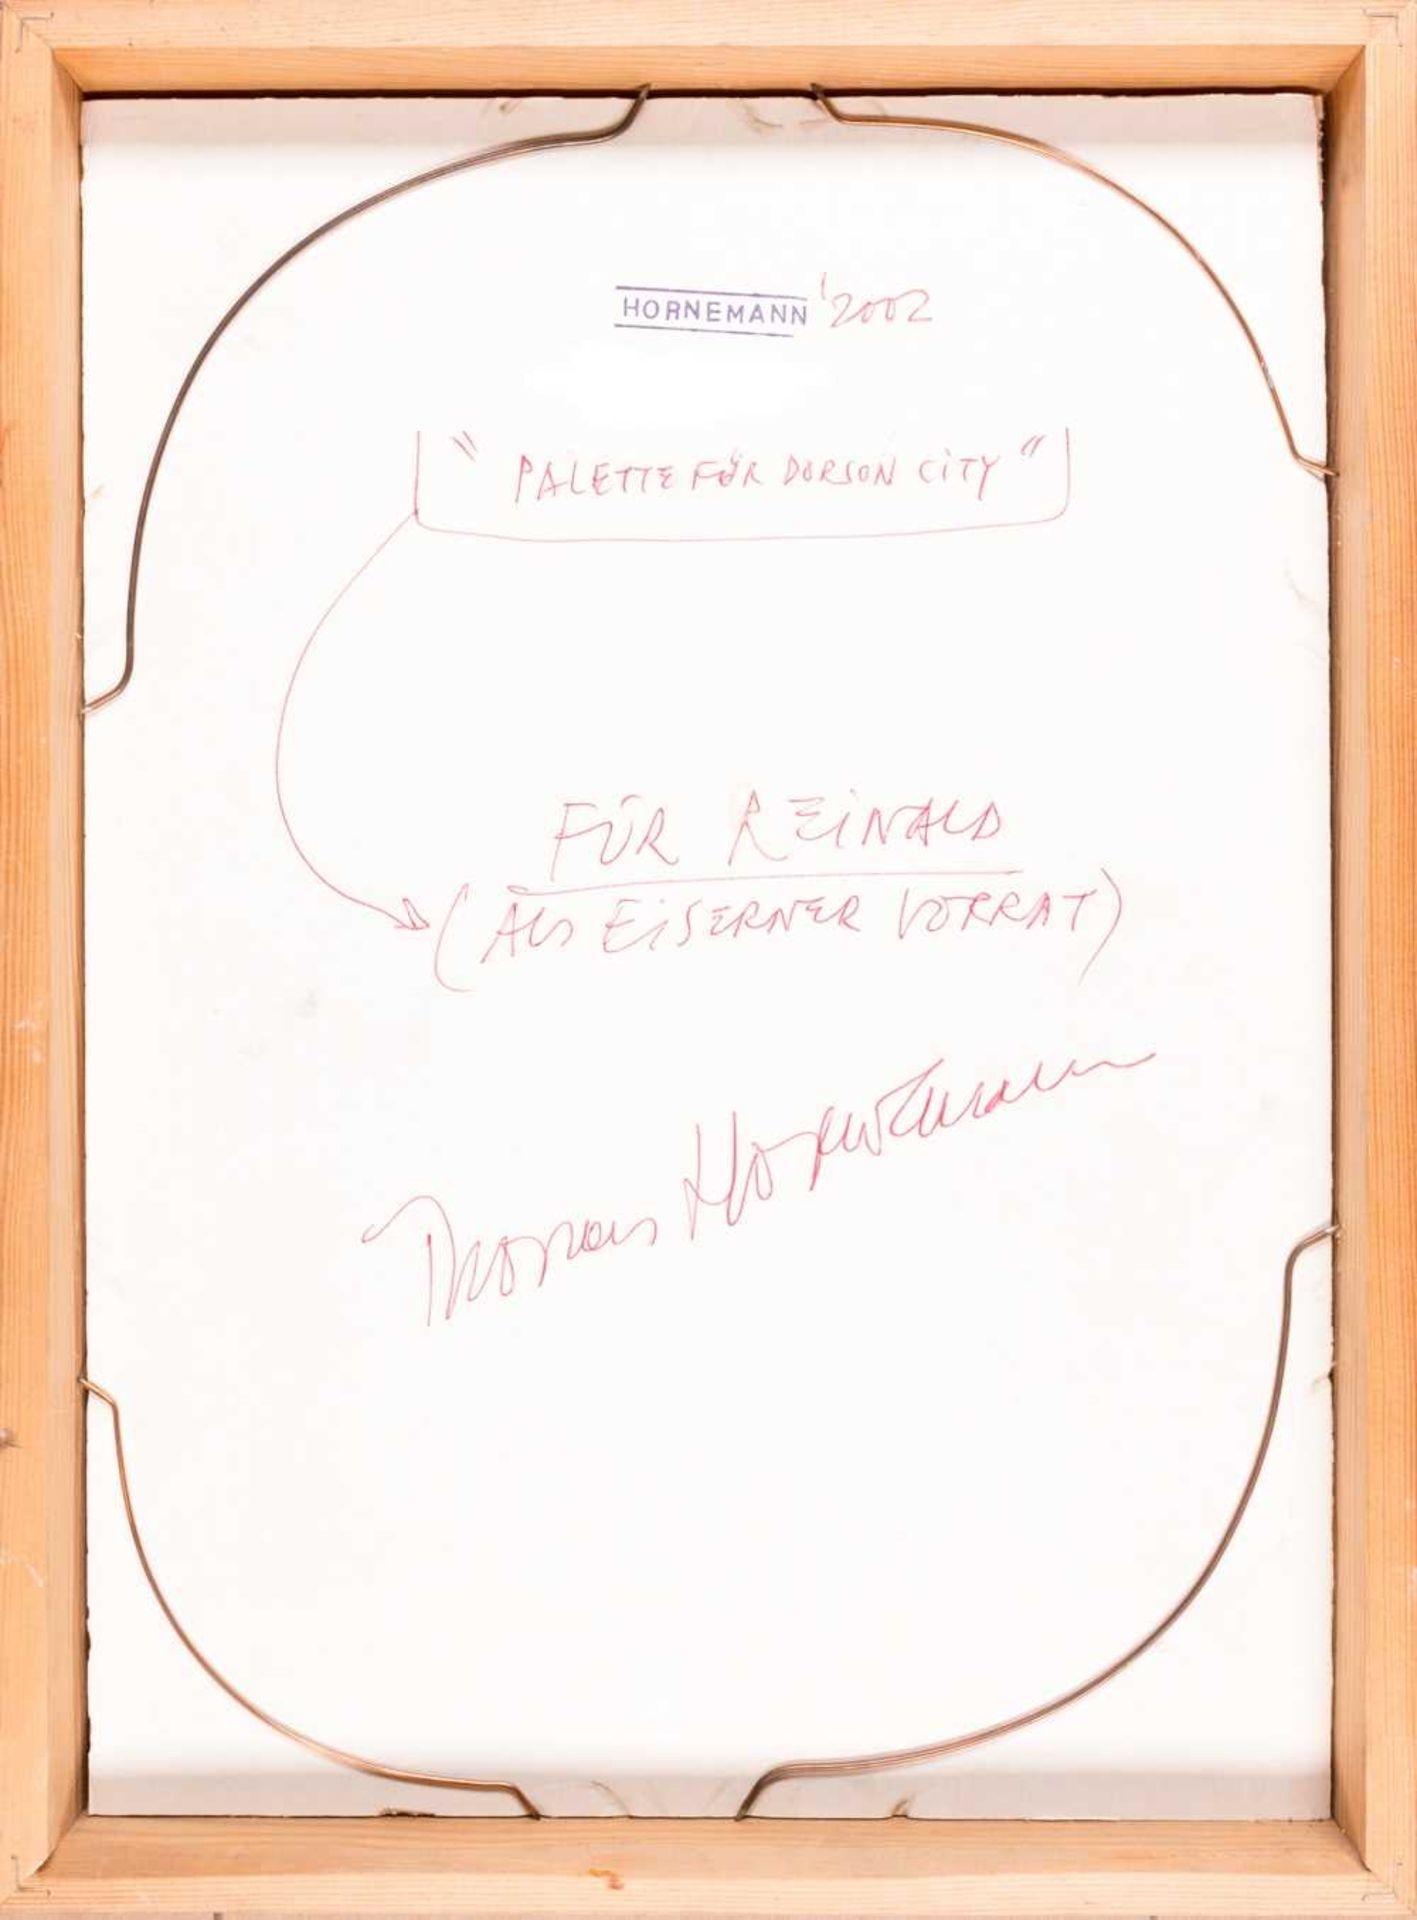 HORNEMANN '2002
"PALETTE FÜR DORSON CITY"
FÜR REINALD
(ALS EISERNER VORRAT)
Thomas Hornemann